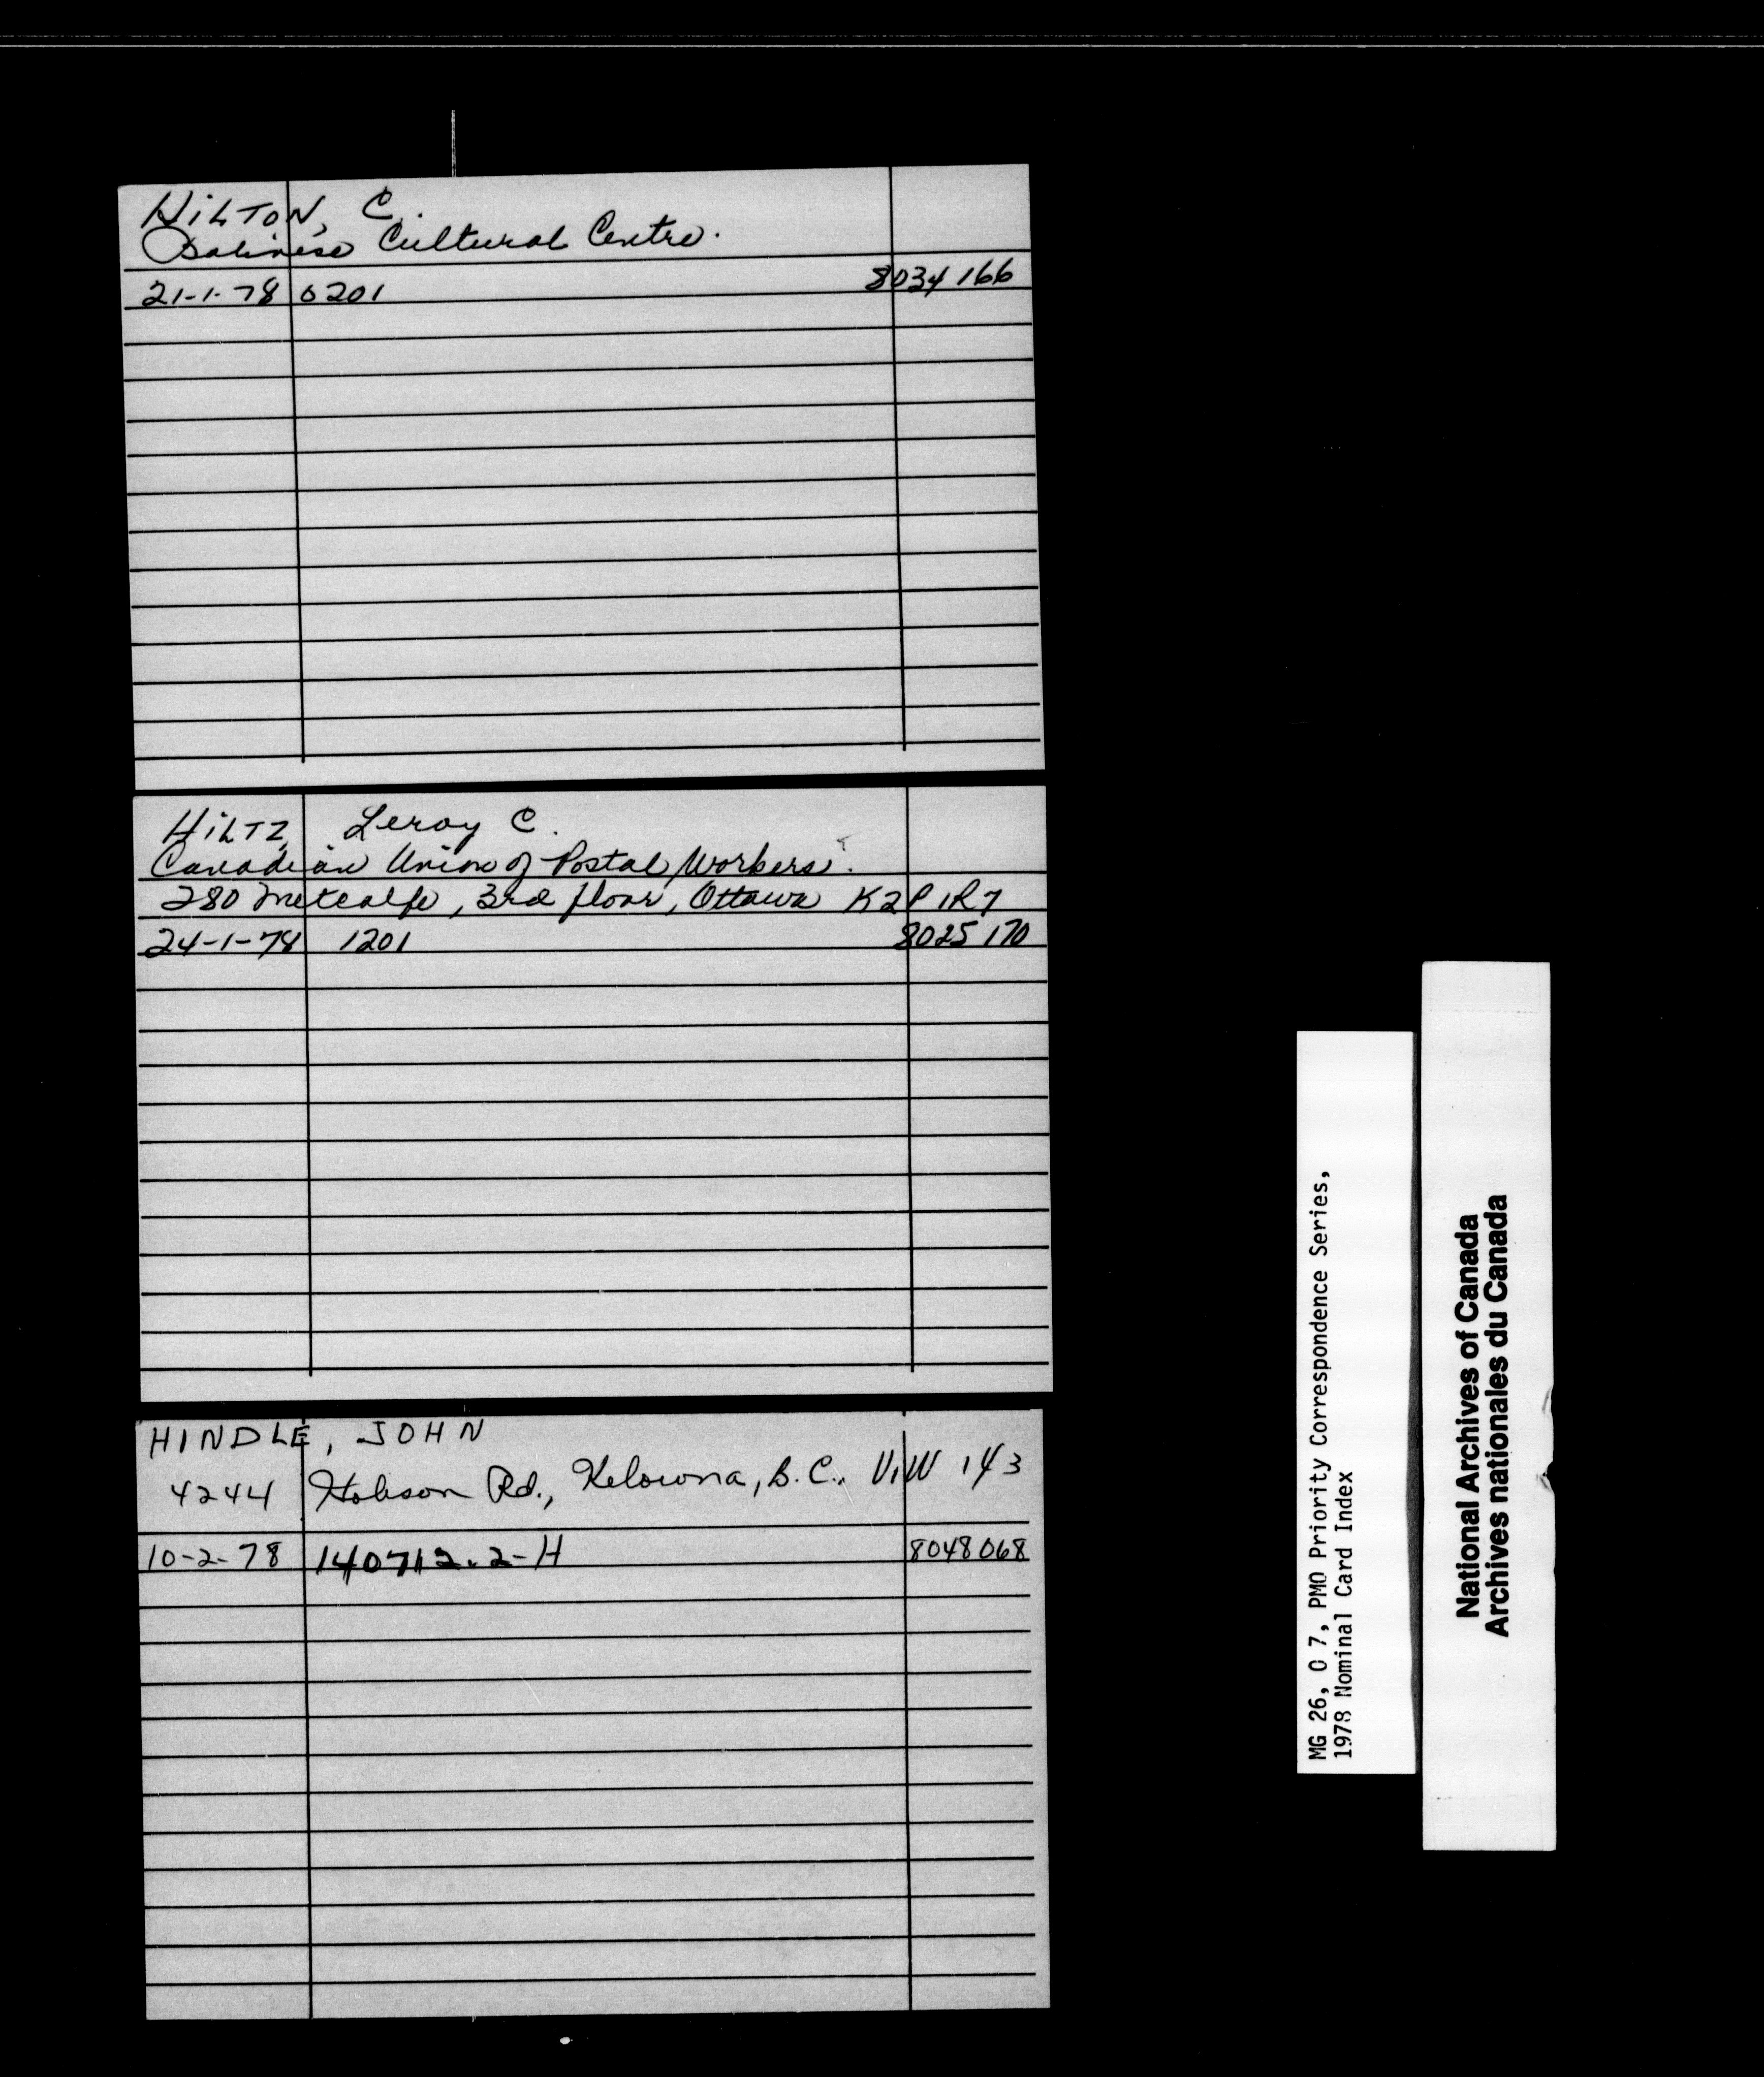 HILTON, C.
Balinese Cultural Centre.
21-1-78 0201 8034166
HILTZ, Leroy C.
Canadian Union of Postal Workers.
280 Metcalfe, 3rd floor, Ottawa K2P 1R7
24-1-78 1201 8025170
HINDLE, JOHN
4244 Hobson Rd., Kelowna, B.C., V1W 1Y3
10-2-78 140712.2-H 8048068
MG 26, O 7, PMO Priority Correspondence Series,
1978 Nominal Card Index
National Archives of Canada
Archives nationales du Canada